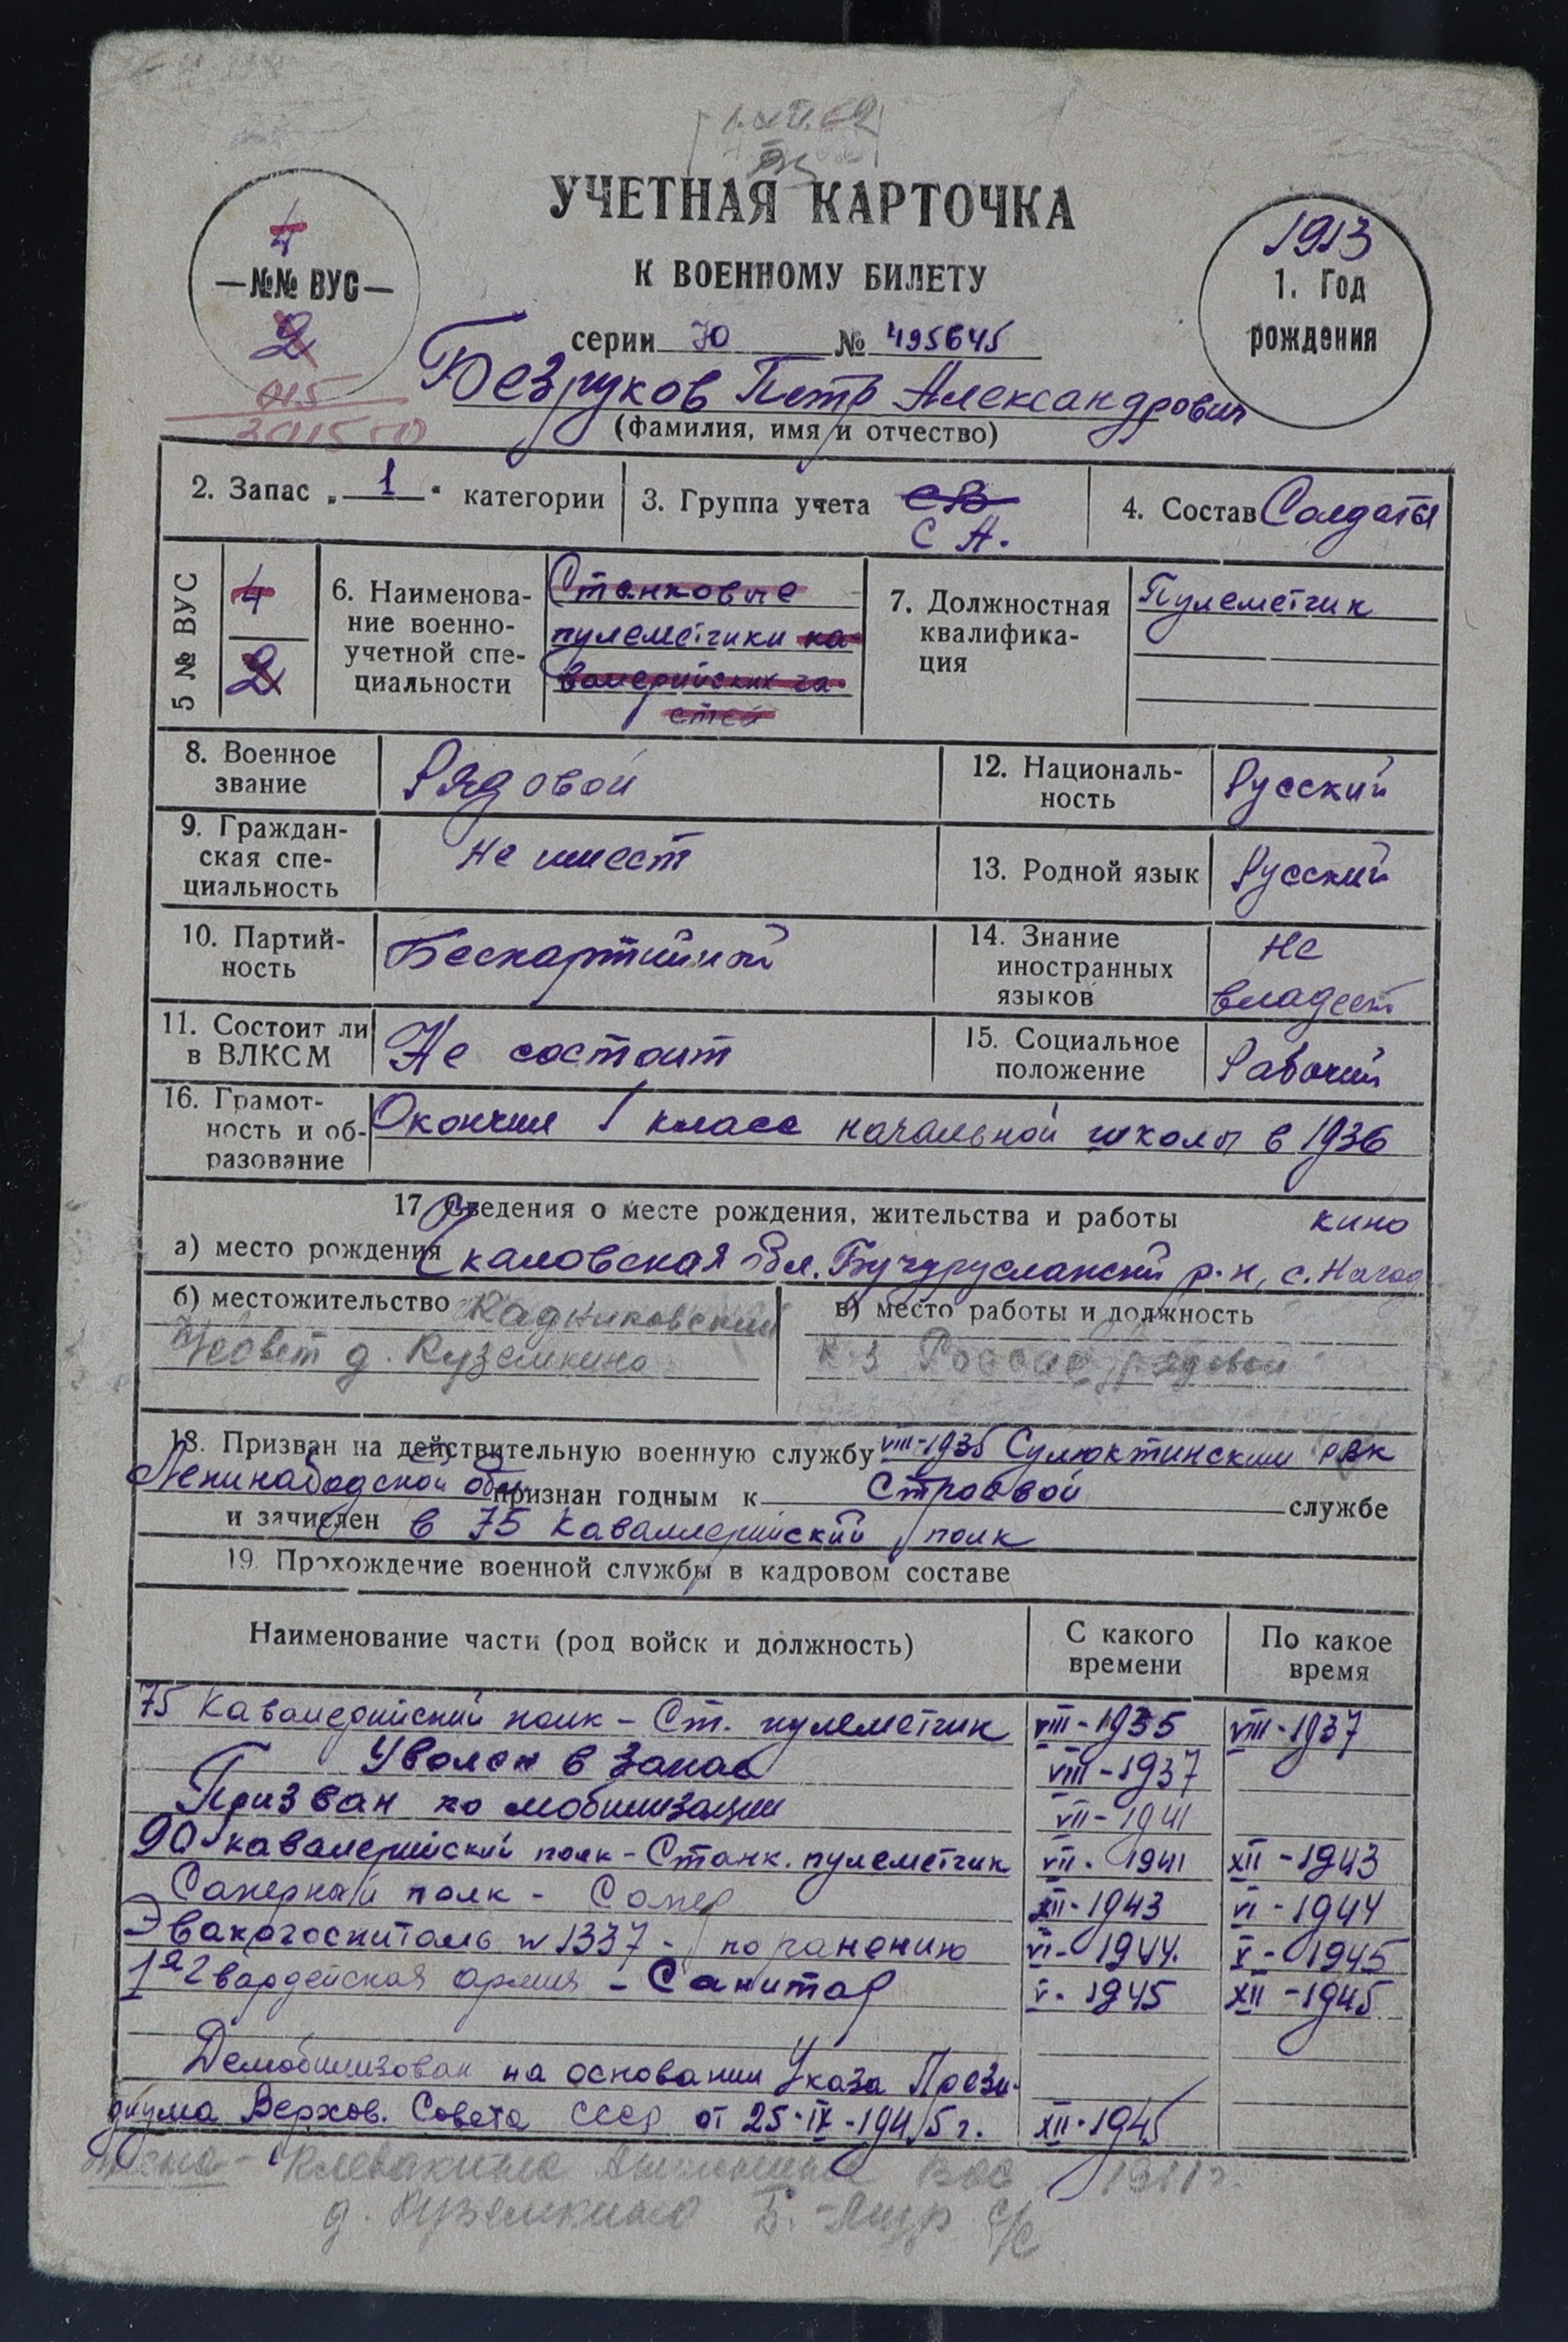 УЧЕТНАЯ КАРТОЧКА
К ВОЕННОМУ БИЛЕТУ
4
—№№ ВУС—
2
1913
1. Год
рождения
серии Ю № 495645
Безруков Петр Александрович
(фамилия, имя и отчество)
2. Запас „ 1 “ категории
3. Группа учета СВ
С А.
4. Состав Солдаты
5 № ВУС
4
2
6. Наименова-
ние военно-
учетной спе-
циальности
Станковые
пулеметчики ка-
валерийских ча-
стей
7. Должностная
квалифика-
ция
Пулеметчик
8. Военное
звание
Рядовой
12. Националь-
ность
Русский
9. Граждан-
ская спе-
циальность
Не имеет
13. Родной язык
Русский
10. Партий-
ность
Беспартийной
14. Знание
иностранных
языков
Не
владеет
11. Состоит ли
в ВЛКСМ
Не состоит
15. Социальное
положение
Рабочий
16. Грамот-
ность и об-
разование
Окончил 1 класс начальной школы в 1936
17. Сведения о месте рождения, жительства и работы
кино
а) место рождения Чкаловская обл. Бугурусланский р-н, с. Нагад
б) местожительство Кадниковский
с/совет д. Куземкино
в) место работы и должность
к-з Россия рядовой
18. Призван на действительную военную службу VIII-1935 Сулюктинским РВК
Ленинабадской обл. признан годным к Строевой службе
и зачислен в 75 Каваллерийский полк
19. Прохождение военной службы в кадровом составе
Наименование части (род войск и должность)
С какого
времени
По какое
время
75 Кавалерийский полк - Ст. пулеметчик VIII-1935 VIII-1937
Уволен в запас VIII-1937
Призван по мобилизации VII-1941
90 кавалерийский полк - Станк. пулеметчик VII-1941 XII-1943
Саперный полк - Сапер XII-1943 VI-1944
Эвакогоспиталь № 1337 - по ранению VI-1944. X-1945
1я Гвардейская армия - Санитар V-1945 XII-1945
Демобилизован на основании Указа Прези-
диума Верхов. Совета СССР от 25-IX-1945 г. XII-1945
Клевакина
д. Куземкино с/с